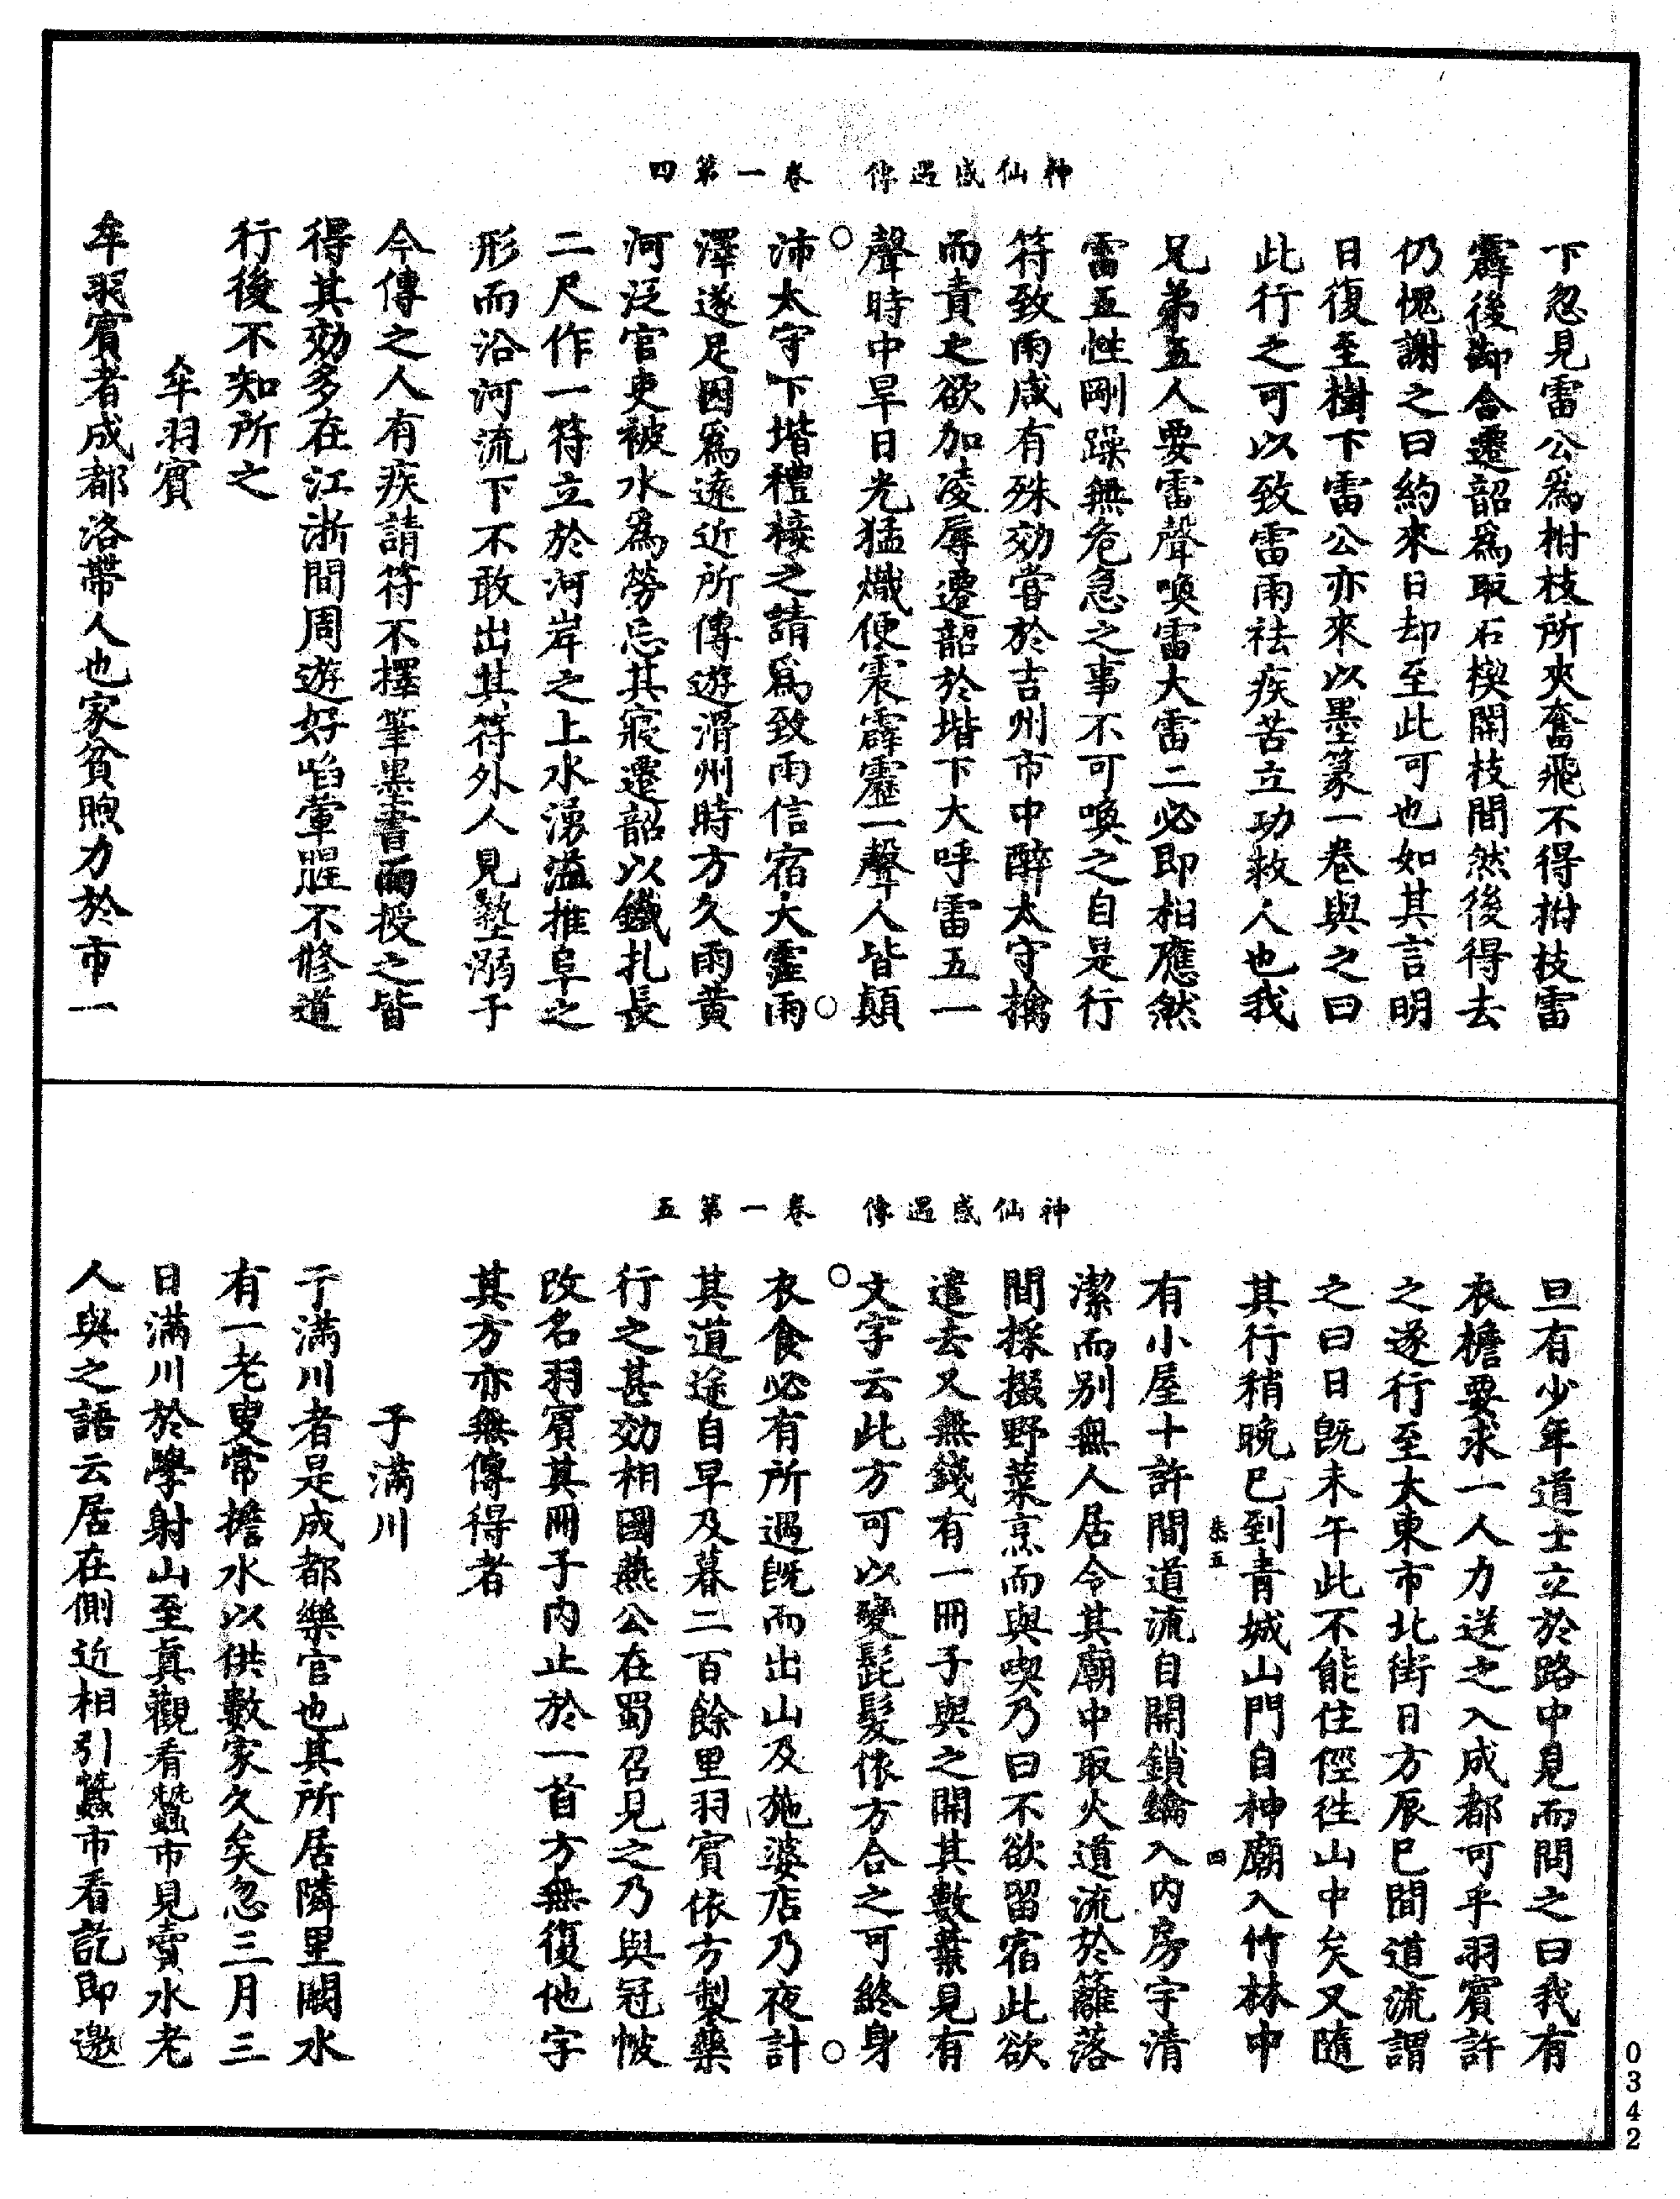 神仙感遇傳　卷一第四
下忽見雷公爲柑枝所夾奮飛不得柑枝雷
霹後却合遷韶爲取石楔開枝間然後得去
仍愧謝之曰約來日却至此可也如其言明
日復至樹下雷公亦來以墨篆一卷與之曰
此行之可以致雷雨祛疾苦立功救人也我
兄弟五人要雷聲喚雷大雷二必即相應然
雷五性剛躁無危急之事不可喚之自是行
符致雨咸有殊効嘗於吉州市中醉太守擒
而責之欲加凌辱遷韶於堦下大呼雷五一
聲時中旱日光猛熾便震霹靂一聲人皆顛
沛太守下堦禮接之請爲致雨信宿大霪雨
澤遂足因爲遠近所傳遊滑州時方久雨黃
河泛官吏被水爲勞忘其寢遷韶以鐵扎長
二尺作一符立於河岸之上水湧溢推阜之
形而沿河流下不敢出其符外人見墊溺于
今傳之人有疾請符不擇筆墨書而授之皆
得其効多在江浙間周遊好啗葷腥不修道
行後不知所之
牟羽賓
牟羽賓者成都洛帶人也家貧煦力於市一
神仙感遇傳　卷一第五
旦有少年道士立於路中見而問之曰我有
衣檐要求一人力送之入成都可乎羽賓許
之遂行至大東市北街日方辰巳間道流謂
之曰日旣未午此不能住徑往山中矣又隨
其行稍晚巳到青城山門自神廟入竹林中
恭五　四
有小屋十許間道流自開鎖鑰入內房宇清
潔而别無人居令其廟中取火道流於籬落
間採掇野菜烹而與喫乃曰不欲留宿此欲
遣去又無錢有一冊子與之開其數葉見有
文字云此方可以變髭髮依方合之可終身
衣食必有所遇旣而出山及施婆店乃夜計
其道途自早及暮二百餘里羽賓依方製藥
行之甚効相國燕公在蜀召見之乃與冠帔
改名羽賓其冊子內止於一首方無復他字
其方亦無傳得者
于滿川
于滿川者是成都樂官也其所居隣里闕水
有一老叟常擔水以供數家久矣忽三月三
日滿川於學射山至真觀看蠶市見賣水老
人與之語云居在側近相引蠶市看訖即邀
0342